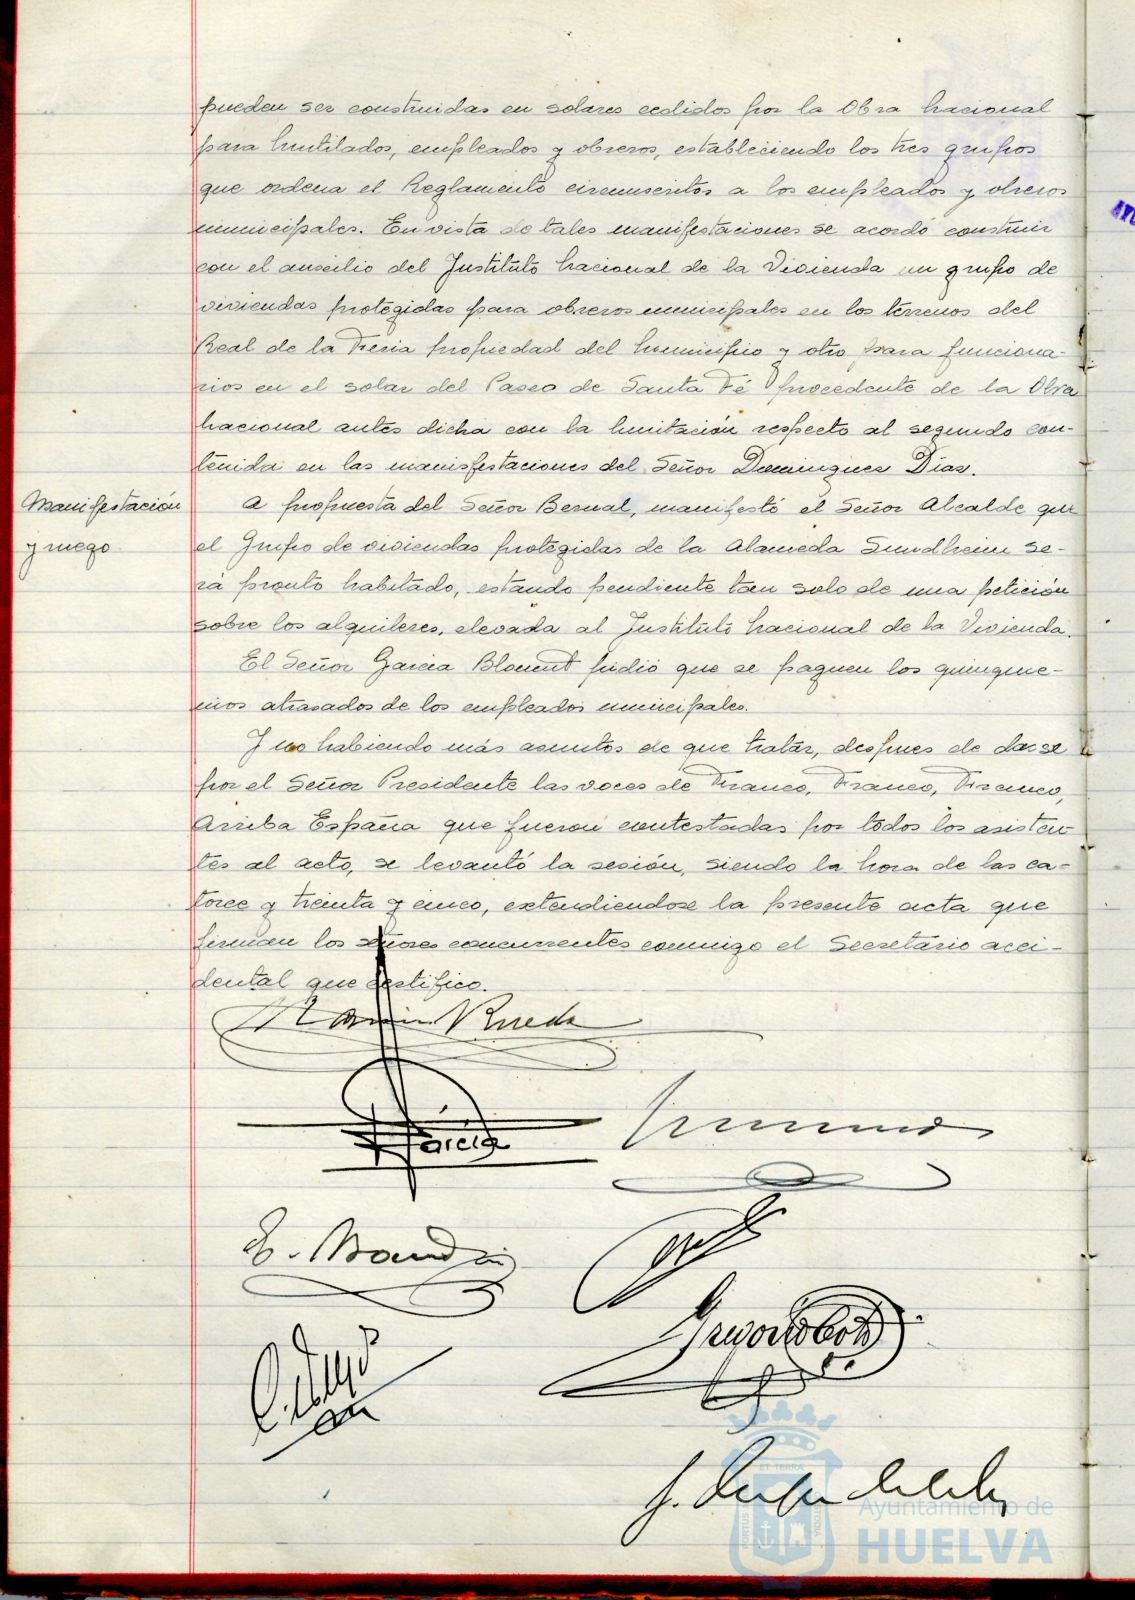 pueden ser construidas en solares cedidos por la Obra Nacional
para Mutilados, empleados y obreros, estableciendo los tres grupos
que ordena el Reglamento circunscritos a los empleados y obreros
municipales. En vista de tales manifestaciones se acordó construir
con el auxilio del Instituto Nacional de la Vivienda un grupo de
viviendas protegidas para obreros municipales en los terrenos del
Real de la Feria propiedad del Municipio y otro para funciona-
rios en el solar del Paseo de Santa Fé procedente de la Obra
Nacional antes dicha con la limitación respecto al segundo con-
tenida en las manisfestaciones del Señor Dominguez Días.
Manifestación
y ruego
A propuesta del Señor Bernal, manifestó el Señor Alcalde que
el Grupo de viviendas protegidas de la Alameda Sundheim se-
rá pronto habitado, estando pendiente tan solo de una petición
sobre los alquileres, elevada al Instituto Nacional de la Vivienda.
El Señor Garcia Blount pidió que se paguen los quinque-
nios atrasados de los empleados municipales.
Y no habiendo más asuntos de que tratar, despues de darse
por el Señor Presidente las voces de Franco, Franco, Franco,
Arriba España que fueron contestadas por todos los asisten-
tes al acto, se levantó la sesión, siendo la hora de las ca-
torce y treinta y cinco, extendiendose la presente acta que
firman los señores concurrentes conmigo el Secretario acci-
dental que certifico.
Rueda
García
Gregorio
Ayuntamiento de
HUELVA